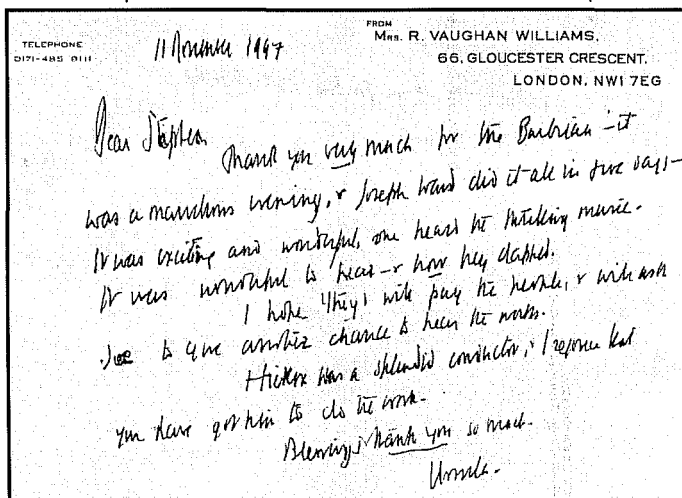 TELEPHONE
0171-485 0111
FROM
MRS. R. VAUGHAN WILLIAMS,
66, GLOUCESTER CRESCENT,
LONDON, NW1 7EG
11 November 1997
Dear Stephen
Thank you very much for the Barbican – it
was a marvellous evening, & Joseph Ward did it all in five days –
It was exciting and wonderful, one heard the thrilling music.
It was wonderful to hear – & how they clapped.
I hope 'they' will pay the people, & will ask
Joe to give another chance to hear the works.
Hickox was a splendid conductor, & I rejoice that
you have got him to do the work.
Blessings & thank you so much.
Ursula.